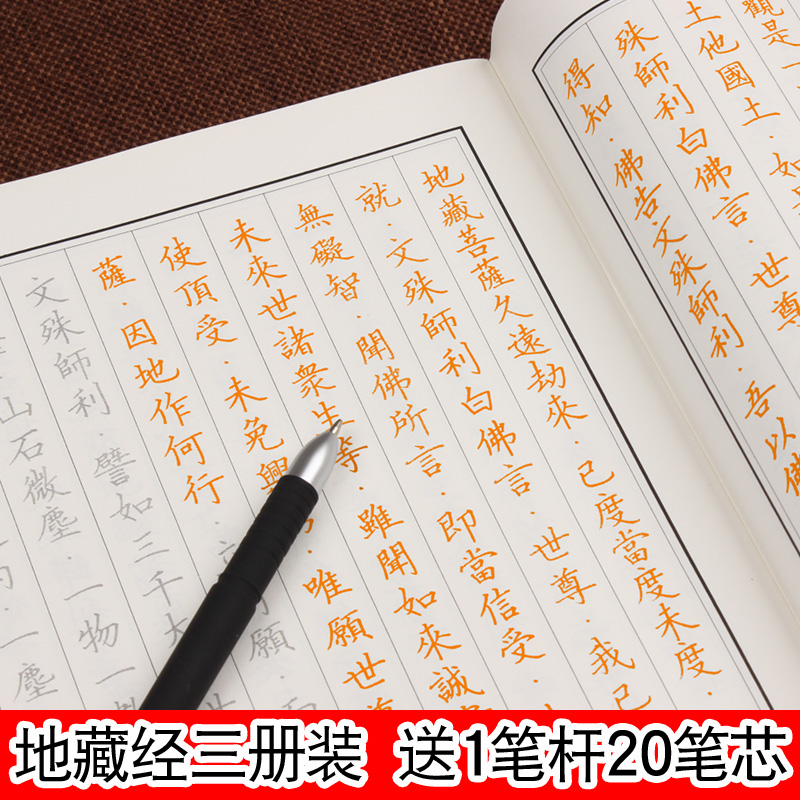 觀是一
土他國土·如
殊師利白佛言·世尊
得知·佛告文殊師利·吾以佛
地藏菩薩久遠劫來·已度當度未度·
就·文殊師利白佛言·世尊·我已
無礙智·聞佛所言·即當信受·
未來世諸衆生等·雖聞如來誠
使頂受·未免興·唯願世尊
薩·因地作何行 願·
文殊師利·譬如三千大
山石微塵·一物一數
一塵
地藏经三册装 送1笔杆20笔芯